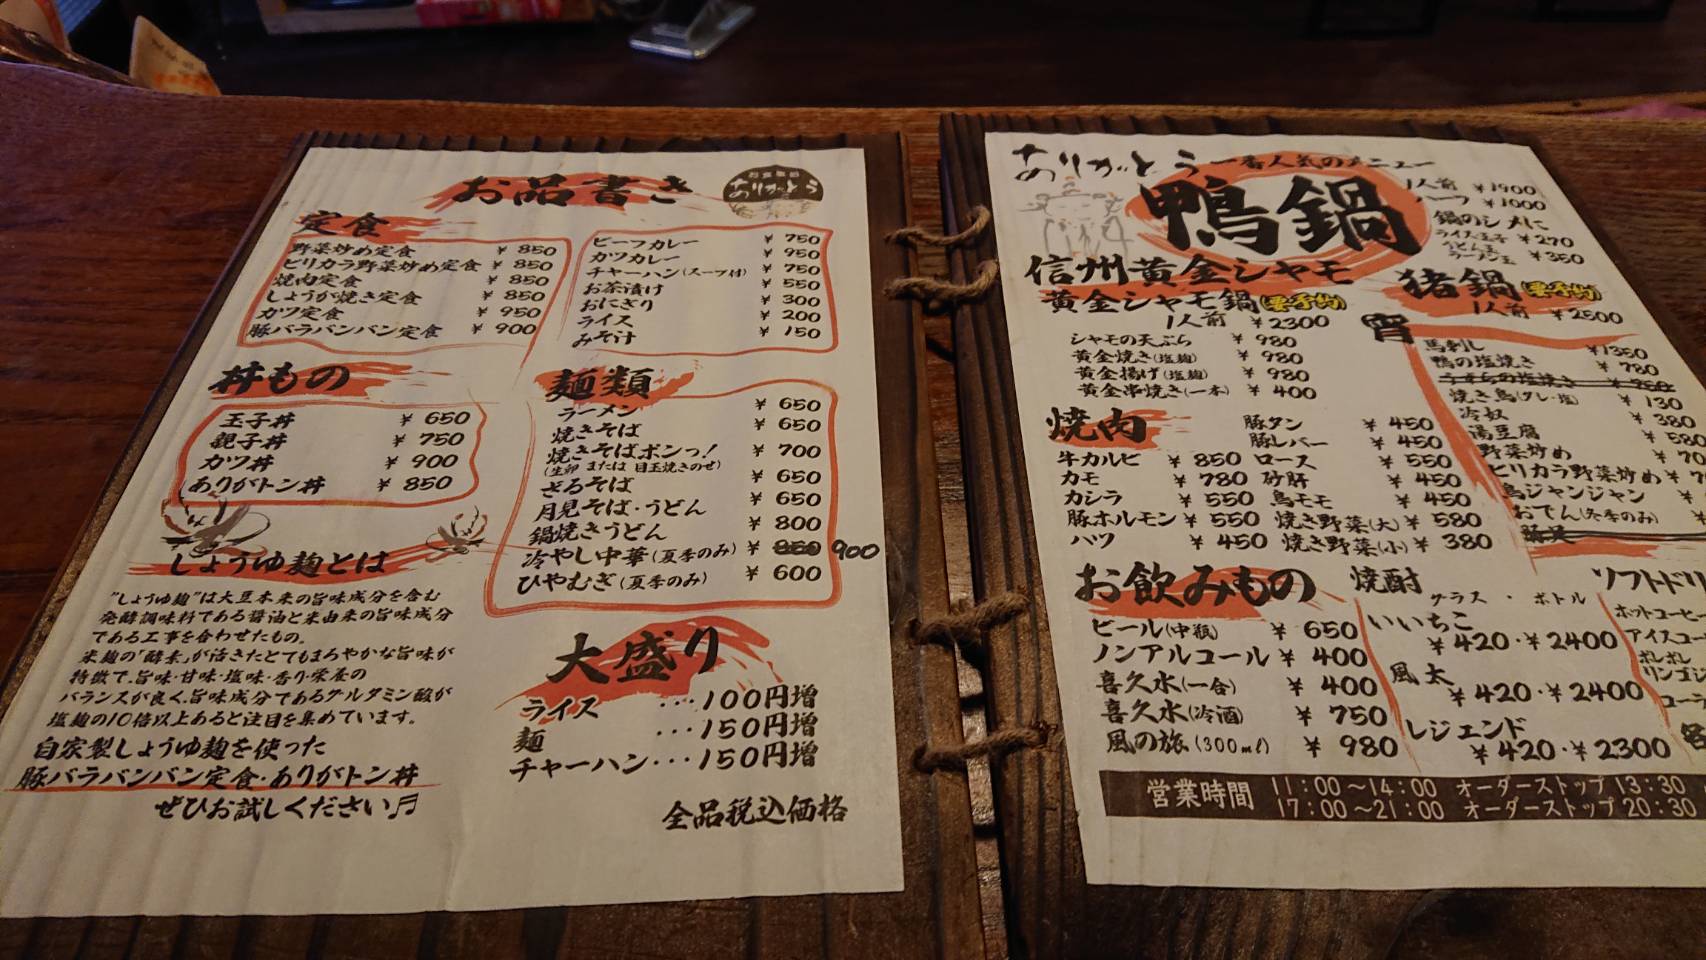 お品書き
ありがとう
定食
野菜炒め定食 ¥850
ピリカラ野菜炒め定食 ¥850
焼肉定食 ¥850
しょうが焼き定食 ¥850
カツ定食 ¥950
豚バラバンバン定食 ¥900
ビーフカレー ¥750
カツカレー ¥950
チャーハン(スープ付) ¥750
お茶漬け ¥550
おにぎり ¥300
ライス ¥200
みそ汁 ¥150
丼もの
玉子丼 ¥650
親子丼 ¥750
カツ丼 ¥900
ありがトン丼 ¥850
麺類
ラーメン ¥650
焼きそば ¥650
焼きそばボンっ! ¥700
(生卵 または 目玉焼きのせ)
ざるそば ¥650
月見そば・うどん ¥650
鍋焼きうどん ¥800
冷やし中華(夏季のみ) ¥850 900
ひやむぎ(夏季のみ) ¥600
しょうゆ麹とは
"しょうゆ麹"は大豆本来の旨味成分を含む
発酵調味料である醤油と米由来の旨味成分
である工事を合わせたもの。
米麹の「酵素」が活きたとてもまろやかな旨味が
特徴で、旨味・甘味・塩味・香り・栄養の
バランスが良く、旨味成分であるグルタミン酸が
塩麹の10倍以上あると注目を集めています。
自家製しょうゆ麹を使った
豚バラバンバン定食・ありがトン丼
ぜひお試しください♬
大盛り
ライス ‥‥100円増
麺 ‥‥150円増
チャーハン‥‥150円増
全品税込価格
ありがとう 一番人気のメニュー
鴨鍋
1人前 ¥1900
ハーフ ¥1000
鍋のシメに
ライス・玉子 ¥270
うどん玉
ラーメン玉 ¥350
信州黄金シャモ
黄金シャモ鍋(要予約)
1人前 ¥2300
シャモの天ぷら ¥980
黄金焼き(塩麹) ¥980
黄金揚げ(塩麹) ¥980
黄金串焼き(一本) ¥400
猪鍋(要予約)
1人前 ¥2500
宵
馬刺し ¥1350
鴨の塩焼き ¥780
うずらの塩焼き
焼き鳥(タレ・塩) ¥130
冷奴 ¥380
湯豆腐 ¥580
野菜炒め ¥70
ピリカラ野菜炒め ¥7
鳥ジャンジャン ¥
おでん(冬季のみ) ¥
豚足
焼肉
豚タン ¥450
豚レバー ¥450
牛カルビ ¥850 ロース ¥550
カモ ¥780 砂肝 ¥450
カシラ ¥550 鳥モモ ¥450
豚ホルモン ¥550 焼き野菜(大) ¥580
ハツ ¥450 焼き野菜(小) ¥380
お飲みもの
ビール(中瓶) ¥650
ノンアルコール ¥400
喜久水(一合) ¥400
喜久水(冷酒) ¥750
風の旅(300ml) ¥980
焼酎
グラス・ボトル
いいちこ
¥420・¥2400
風太
¥420・¥2400
レジェンド
¥420・¥2300
ソフトドリ
ホットコーヒー
アイスコー
ポレポレ
リンゴジ
コーラ
営業時間 11:00～14:00 オーダーストップ 13:30
17:00～21:00 オーダーストップ 20:30